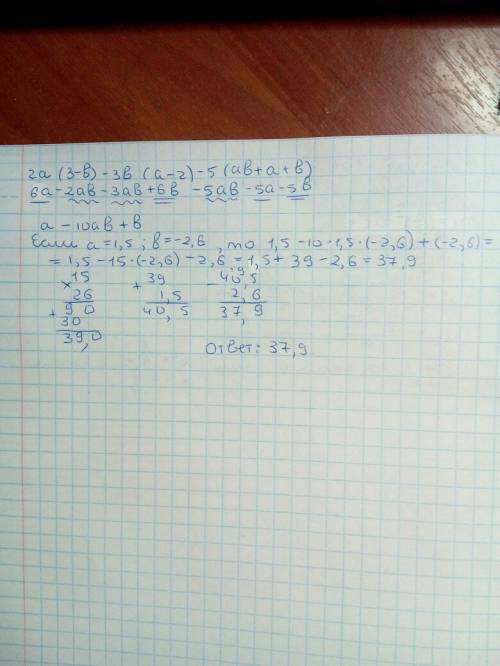 2а (3-в) - 3в (а-2) - 5 (ав+а+в)
6а - 2ав - 3ав + 6в - 5ав - 5а - 5в
а - 10ав + в
Если а = 1,5 ; в = -2,6 , то 1,5 - 10 · 1,5 · (-2,6) + (-2,6) =
= 1,5 - 15 · (-2,6) - 2,6 = 1,5 + 39 - 2,6 = 37,9
× 15
26
+ 90
30
39,0
+ 39
1,5
40,5
- 40,5
2,6
37,9
Ответ: 37,9